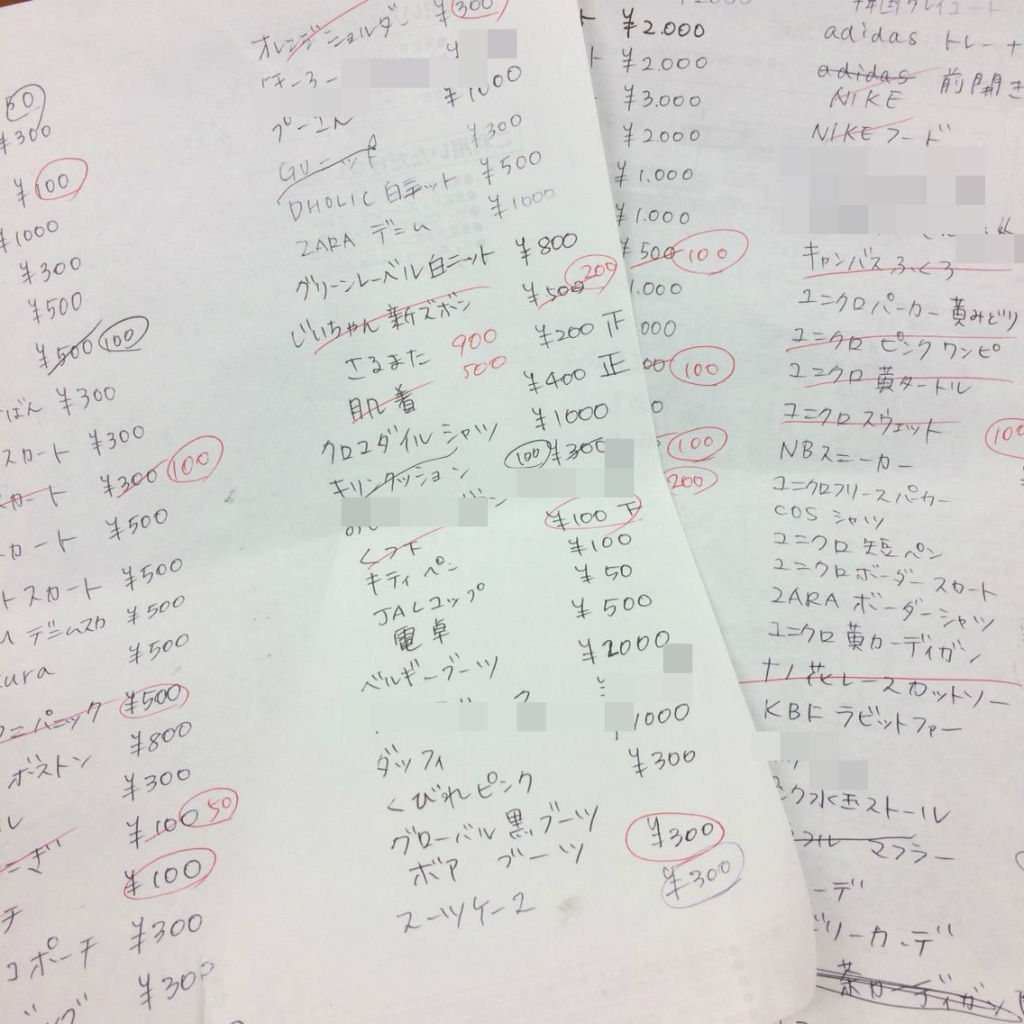 50
¥300
¥100
¥1000
¥300
¥500
¥500 100
ばん ¥300
スカート ¥300
スカート ¥300 100
カート ¥500
トスカート ¥500
デニムスカ ¥500
¥500
パニック ¥500
ボストン ¥800
ル ¥300
¥100 50
¥100
チ ¥300
コポーチ ¥300
オレンジショルダー ¥300
¥
プーさん ¥1000
GUニット ¥300
DHOLIC 白ニット ¥500
ZARA デニム ¥1000
グリーンレーベル白ニット ¥800
じいちゃん新ズボン ¥500 200
さるまた 900 ¥200 正
肌着 500 ¥400 正
クロコダイルシャツ ¥1000
キリンクッション 100 ¥300
くつ下 ¥100 下
キティペン ¥100
JALコップ ¥50
電卓 ¥500
ベルギーブーツ ¥2000
ダッフィ 1000
くびれピンク ¥300
グローバル黒ブーツ
ボア ブーツ ¥300
スーツケース ¥300
¥2.000
¥2.000
¥3.000
¥2000
¥1.000
¥1.000
¥500 100
1.000
000
00 100
0
100
200
adidas トレーナ
adidas 前開き
NIKE
NIKE フード
キャンバスふくろ
ユニクロパーカー黄みどり
ユニクロ ピンク ワンピ
ユニクロ 黄タートル
ユニクロ スウェット 100
NBスニーカー
ユニクロフリースパーカー
COS シャツ
ユニクロ 短パン
ユニクロボーダースカート
ZARA ボーダーシャツ
ユニクロ 黄カーディガン
ナノ花レースカットソー
KBF ラビットファー
水玉ストール
マフラー
ーデ
カーデ
茶カーディガン